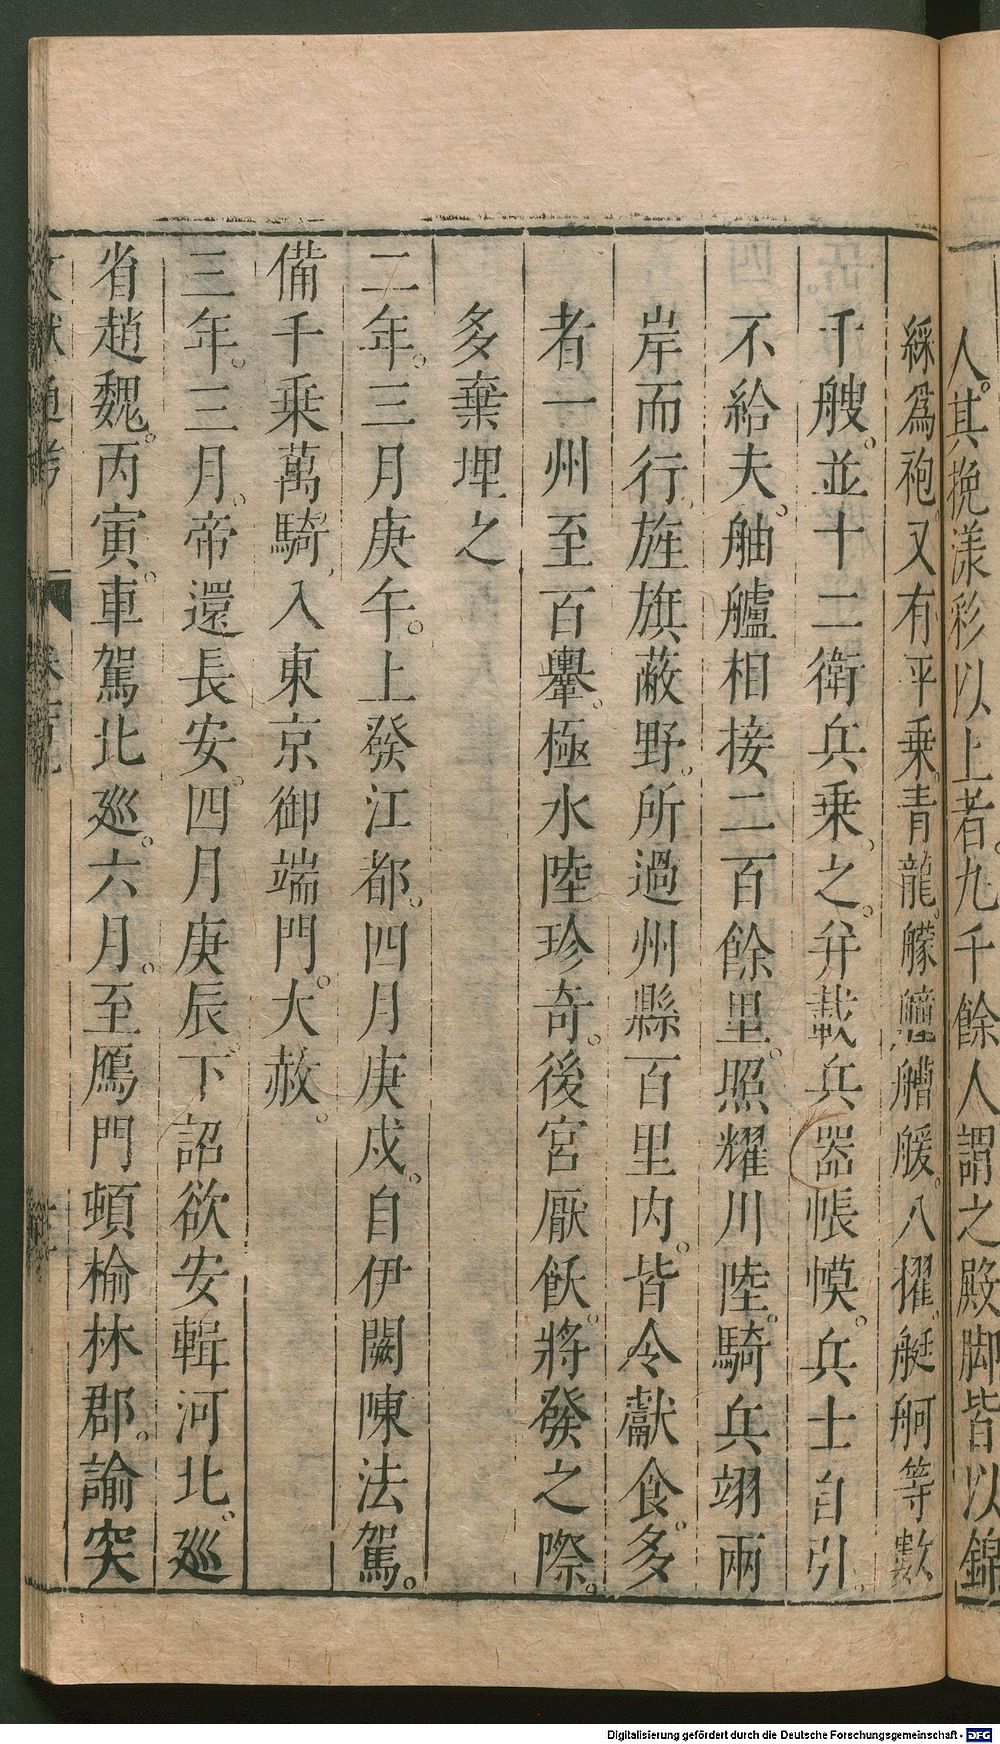 人其挽漾彩以上者九千餘人謂之殿脚皆以錦
綵爲袍又有平乗青龍艨艟艚艐八擢艇舸等數
千艘並十二衛兵乗之并載兵器帳幙兵士自引
不給夫舳艫相接二百餘里照耀川陸騎兵翊兩
岸而行旌旗蔽野所過州縣百里内皆令獻食多
者一州至百轝極水陸珍奇後宮厭飫將發之際
多棄埋之
二年三月庚午上發江都四月庚戍自伊闕陳法駕
備千乗萬騎入東京御端門大赦
三年三月帝還長安四月庚辰下詔欲安輯河北巡
省趙魏丙寅車駕北巡六月至鴈門頓榆林郡諭突
文獻通考
Digitalisierung gefördert durch die Deutsche Forschungsgemeinschaft - DFG